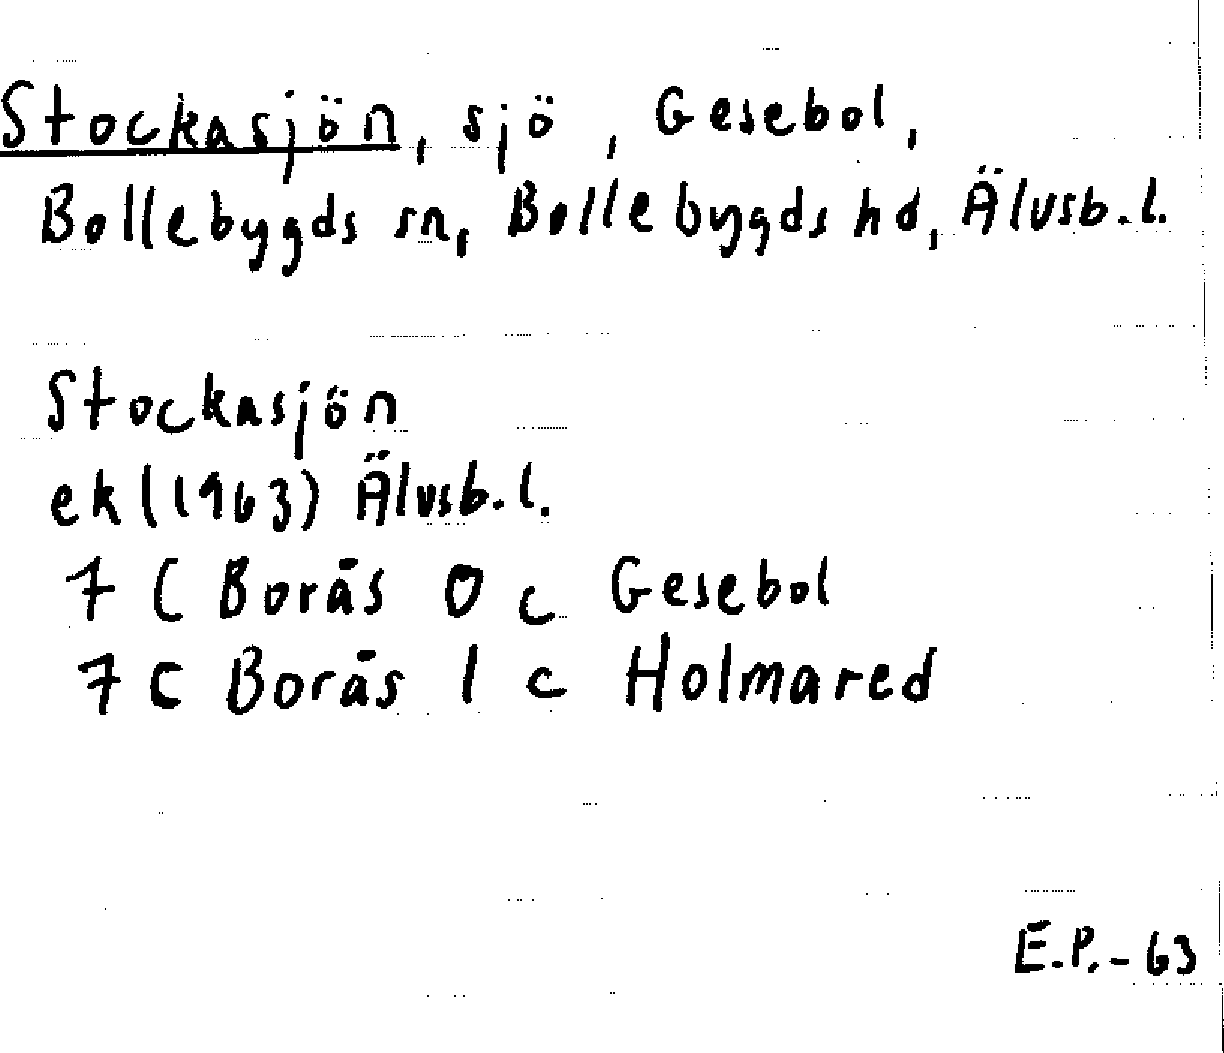 Stockasjön, sjö, Gesebol,
Bollebygds sn, Bollebygds hd, Älvsb.l.
Stockasjön
ek (1963) Älvsb.l.
7 C Borås 0 c Gesebol
7 C Borås 1 c Holmared
E.P.-63